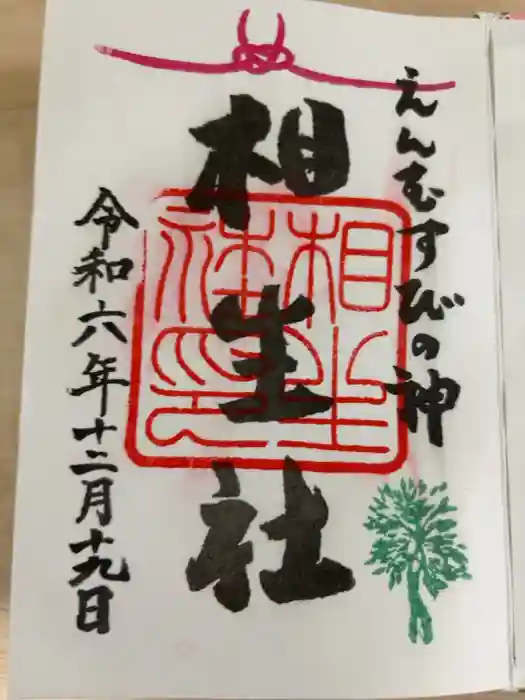 えんむすびの神
相生社
令和六年十二月十九日